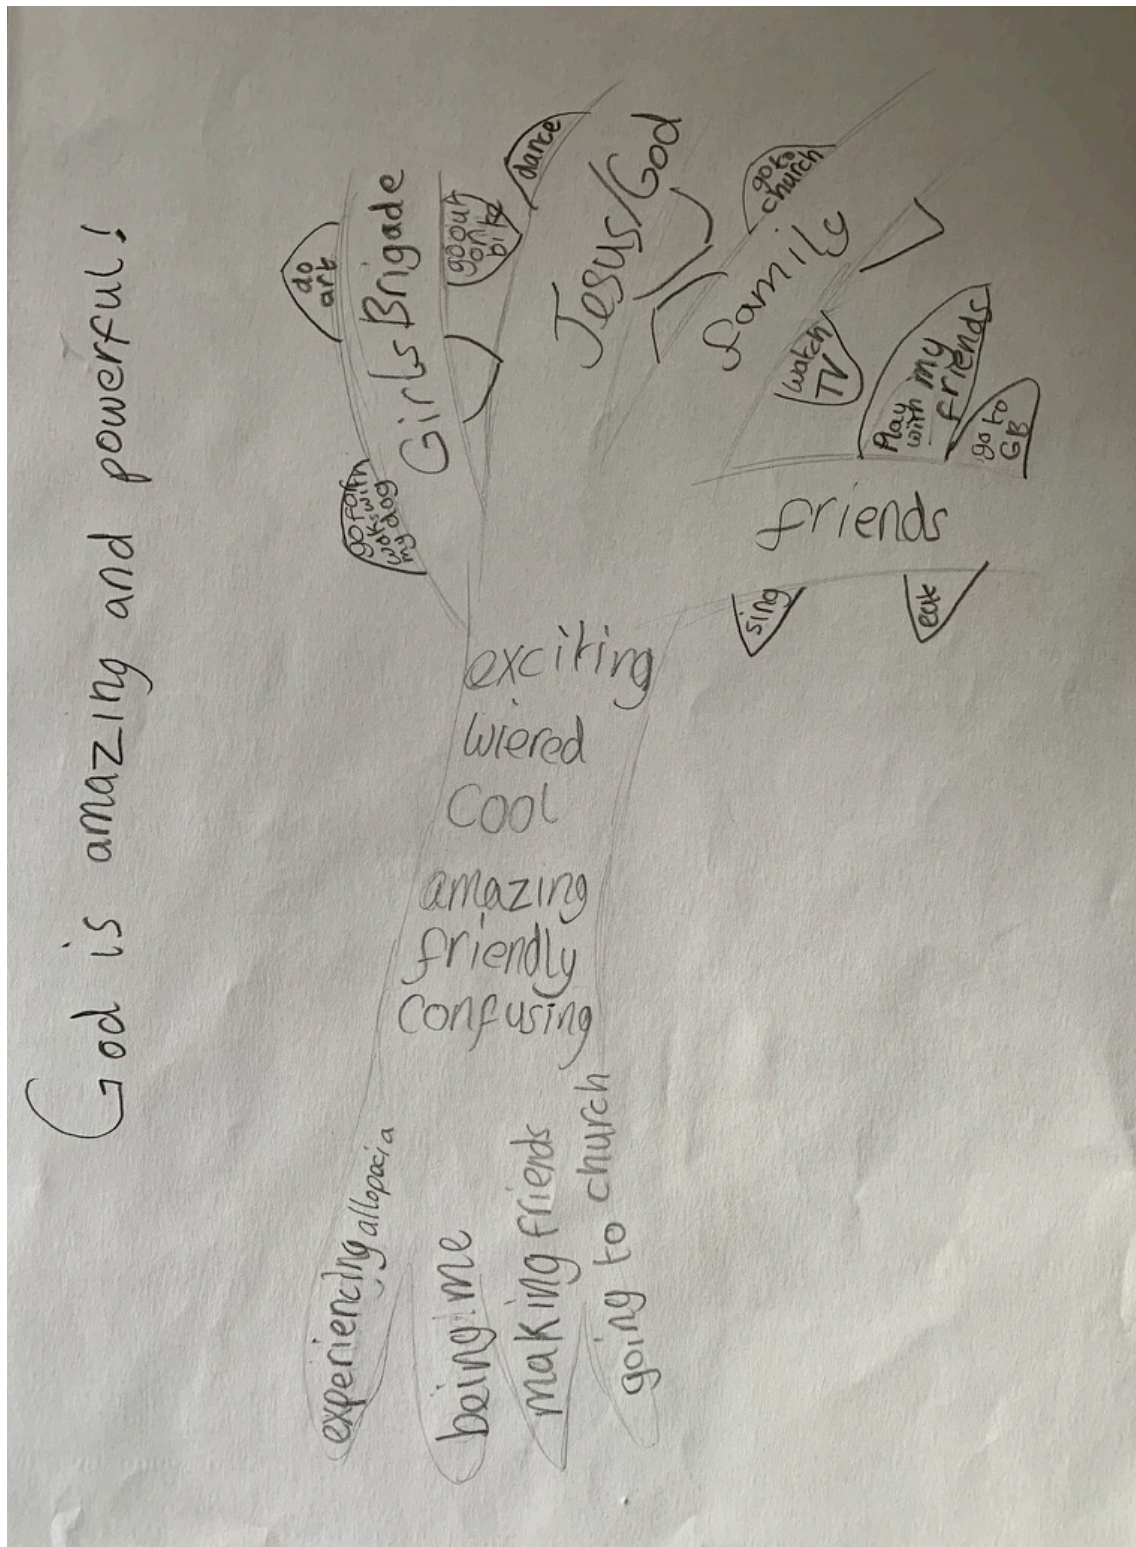 God is amazing and powerful!
do
art
go for a
wok with
my dog
Girls Brigade
go out
on a
bike
dance
Jesus/God
go to
church
family
watch
TV
Play
with my
friends
go to
GB
friends
sing
eat
exciting
wiered
cool
amazing
friendly
confusing
experiencing allopacia
being me
making friends
going to church